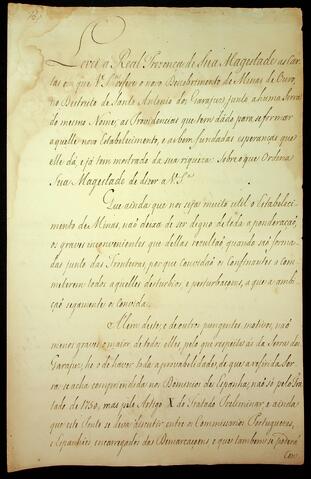 Levei a Real Prezença de Sua Magestade as Car-
tas em que V. S.ª refere o novo Descobrimento de Minas de Ouro,
no Destricto de Santo Antonio dos Garajuz, junto a huma Serra
do mesmo Nome; as Providencias que tem dado para se formar
aquelle novo Estabelecimento, e as bem fundadas esperanças que
elle dá, e já tem mostrado da sua riqueza: Sobre o que Ordena
Sua Magestade de dizer a V. S.ª
Que ainda que nos seja muito util o Estabeleci-
mento de Minas, não deixa de ser digno de toda a ponderação,
os graves inconvenientes que dellas rezultaõ quando saõ forma-
das junto das Fronteiras, por que convidaõ os Confinantes a com-
meterem todos aquelles disturbios e perturbaçoens, a que a ambi-
çaõ cegamente os convida.
Alem deste, e de outros pungentes motivos, naõ
menos graves, o maior de todos elles pelo que respeita ás da Serra dos
Garajuz, he o de haver toda a provabilidade, de que a referida Ser-
ra se acha comprehendida no Dominio de Espanha, naõ só pelo Tra-
tado de 1750, mas pelo Artigo X do Tratado Preliminar, e ainda
que este Ponto se deva discutir entre os Commissarios Portuguezes,
e Espanhoes encarregados das Demarcaçoens, e que tambem se poderá